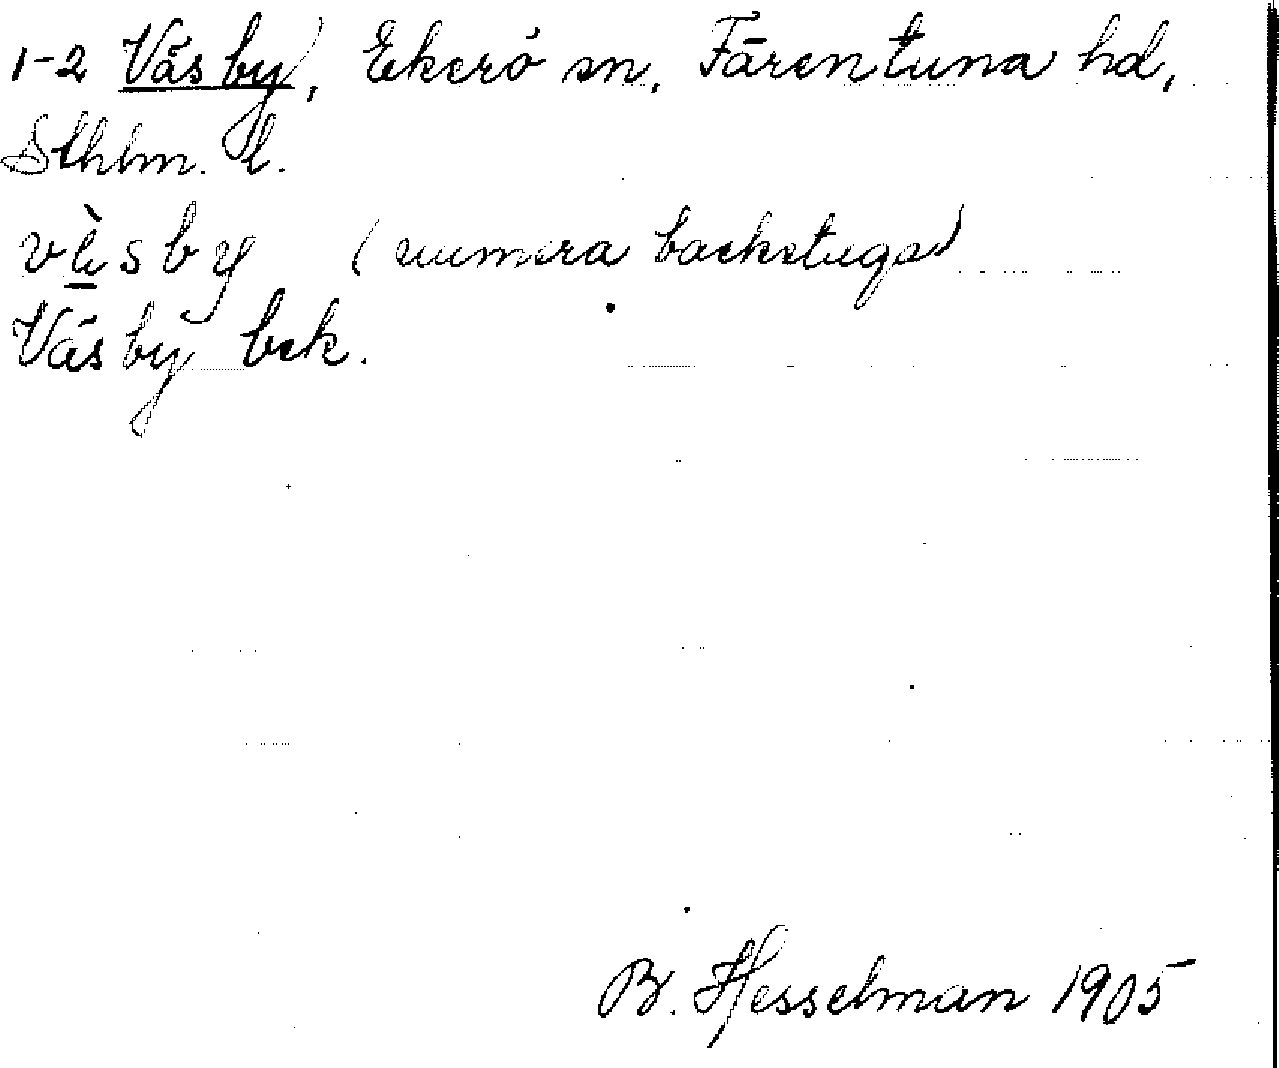 1-2 Väsby, Ekerö sn, Färentuna hd,
Sthlm. l.
vè̱sby (numera backstuga)
Väsby bck.
B. Hesselman 1905